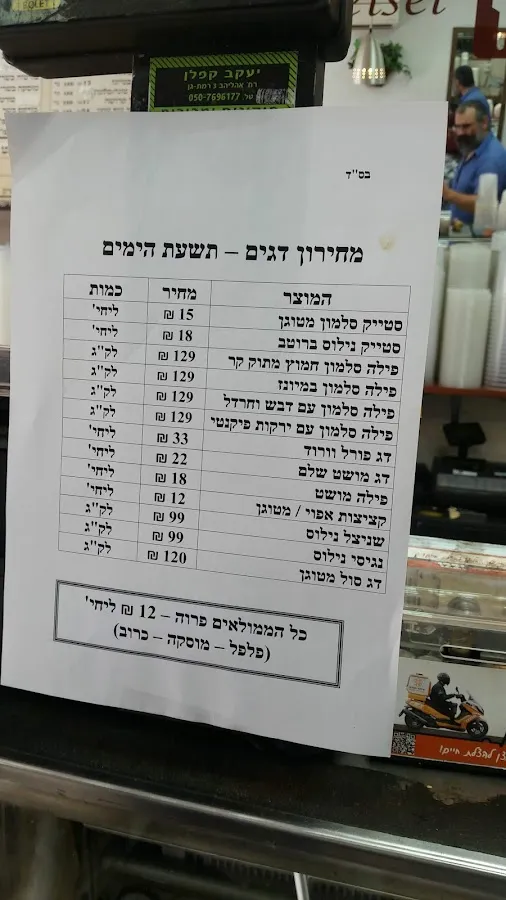 יעקב קפלן
רח' אהליהב 3 רמת-גן
טל' 050-7696177
בס"ד
מחירון דגים – תשעת הימים
המוצר מחיר כמות
סטייק סלמון מטוגן 15 ₪ ליחי'
סטייק נילוס ברוטב 18 ₪ ליחי'
פילה סלמון חמוץ מתוק קר 129 ₪ לק"ג
פילה סלמון במיונז 129 ₪ לק"ג
פילה סלמון עם דבש וחרדל 129 ₪ לק"ג
פילה סלמון עם ירקות פיקנטי 129 ₪ לק"ג
דג פורל וורוד 33 ₪ ליחי'
דג מושט שלם 22 ₪ ליחי'
פילה מושט 18 ₪ ליחי'
קציצות אפוי / מטוגן 12 ₪ ליחי'
שניצל נילוס 99 ₪ לק"ג
נגיסי נילוס 99 ₪ לק"ג
דג סול מטוגן 120 ₪ לק"ג
כל הממולאים פרוה – 12 ₪ ליחי'
(פלפל – מוסקה – כרוב)
להצלת חיים!